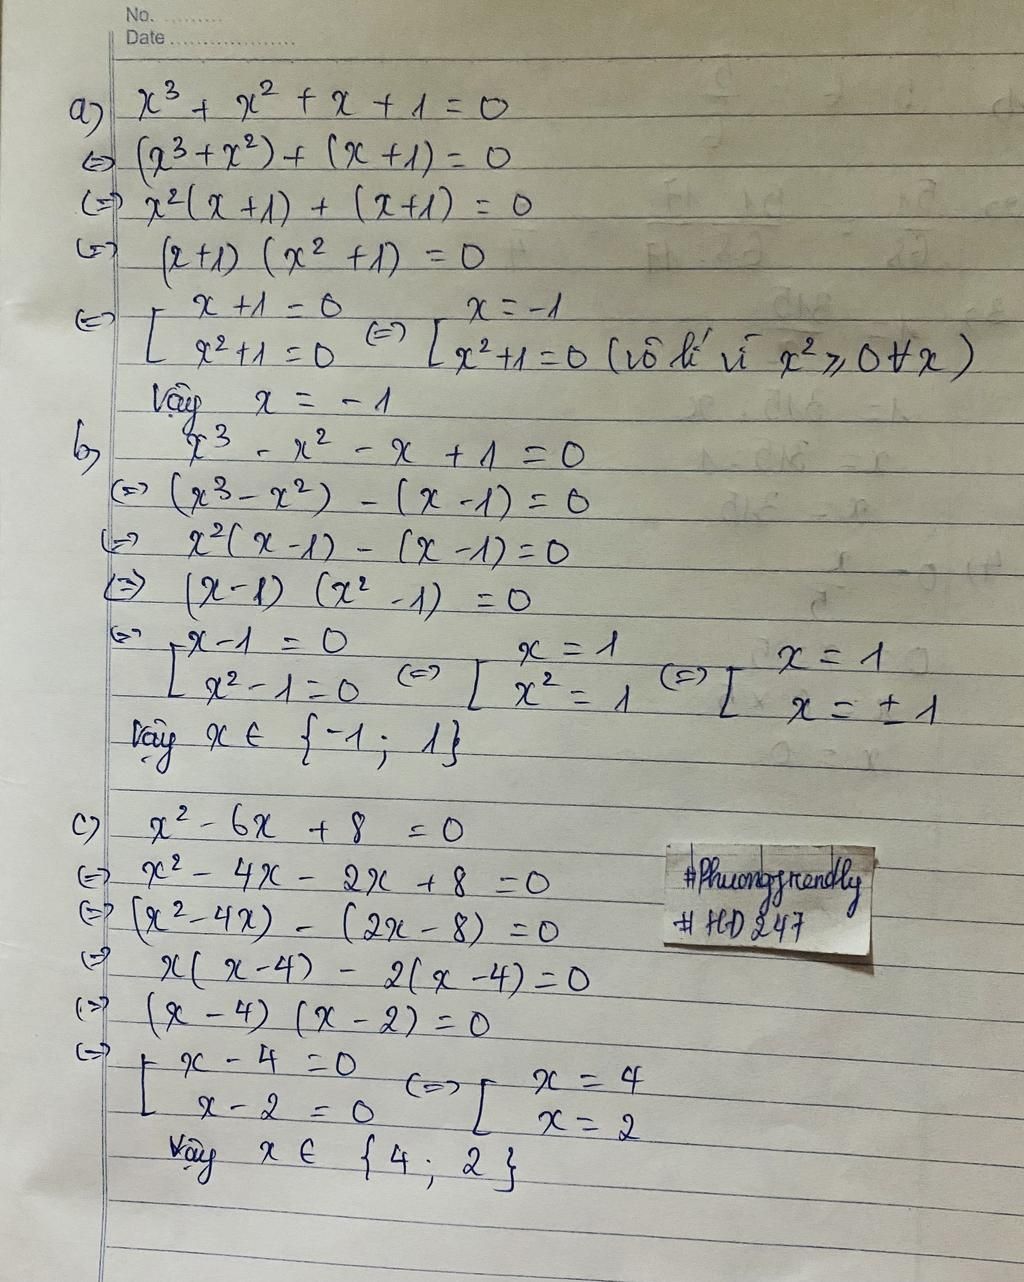 No. .........
Date ..................
a) x³ + x² + x + 1 = 0
⇔ (x³ + x²) + (x + 1) = 0
⇔ x²(x + 1) + (x + 1) = 0
⇔ (x + 1) (x² + 1) = 0
⇔ [ x + 1 = 0 ⇔ [ x = -1
x² + 1 = 0 x² + 1 = 0 (vô lí vì x² ⩾ 0 ∀x)
Vậy x = -1
b) x³ - x² - x + 1 = 0
⇔ (x³ - x²) - (x - 1) = 0
⇔ x²(x - 1) - (x - 1) = 0
⇔ (x - 1) (x² - 1) = 0
⇔ [ x - 1 = 0 ⇔ [ x = 1 ⇔ [ x = 1
x² - 1 = 0 x² = 1 x = ± 1
Vậy x ∈ {-1; 1}
c) x² - 6x + 8 = 0
⇔ x² - 4x - 2x + 8 = 0
⇔ (x² - 4x) - (2x - 8) = 0
⇔ x(x - 4) - 2(x - 4) = 0
⇔ (x - 4) (x - 2) = 0
⇔ [ x - 4 = 0 ⇔ [ x = 4
x - 2 = 0 x = 2
Vậy x ∈ {4; 2}
#Phuongfrendly
#HD247